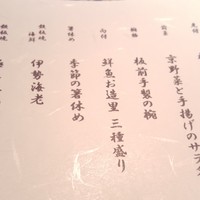 前菜
京野菜と手揚げのサラダ
椀物
板前手製の椀
向付
鮮魚お造里 三種盛り
箸休め
季節の箸休め
鉄板焼
海鮮
伊勢海老
鉄板焼